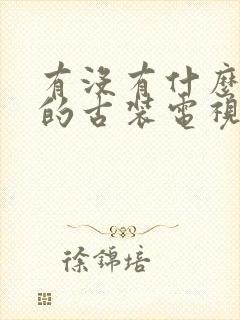 有沒有什麼
的古裝電視
徐錦培